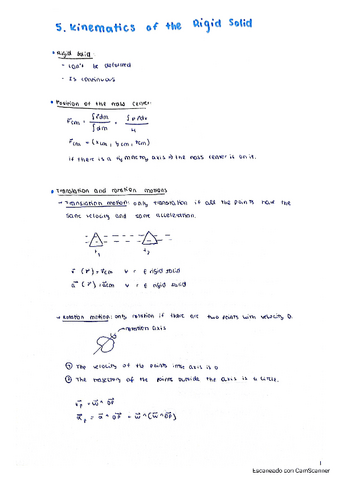 5. Kinematics of the Rigid Solid
• Rigid Solid
- can't be deformed
- Is continuous
• Position of the mass center:
r̄cm = ∫r̄dm / ∫dm =
r̄cm = (xcm, ycm, zcm)
If there is a symmetry axis ⇒ the mass center is on it.
• Translation and rotation motions
→ Translation motion: only translation if all the points have the
same velocity and same acceleration.
t₁ t₂
rigid solid
rigid solid
→ Rotation motion: only rotation if there are two points with velocity 0.
rotation axis
① The velocity of the points into axis is 0
② The trajectory of the points outside the axis is a circle.
1
Escaneado con CamScanner